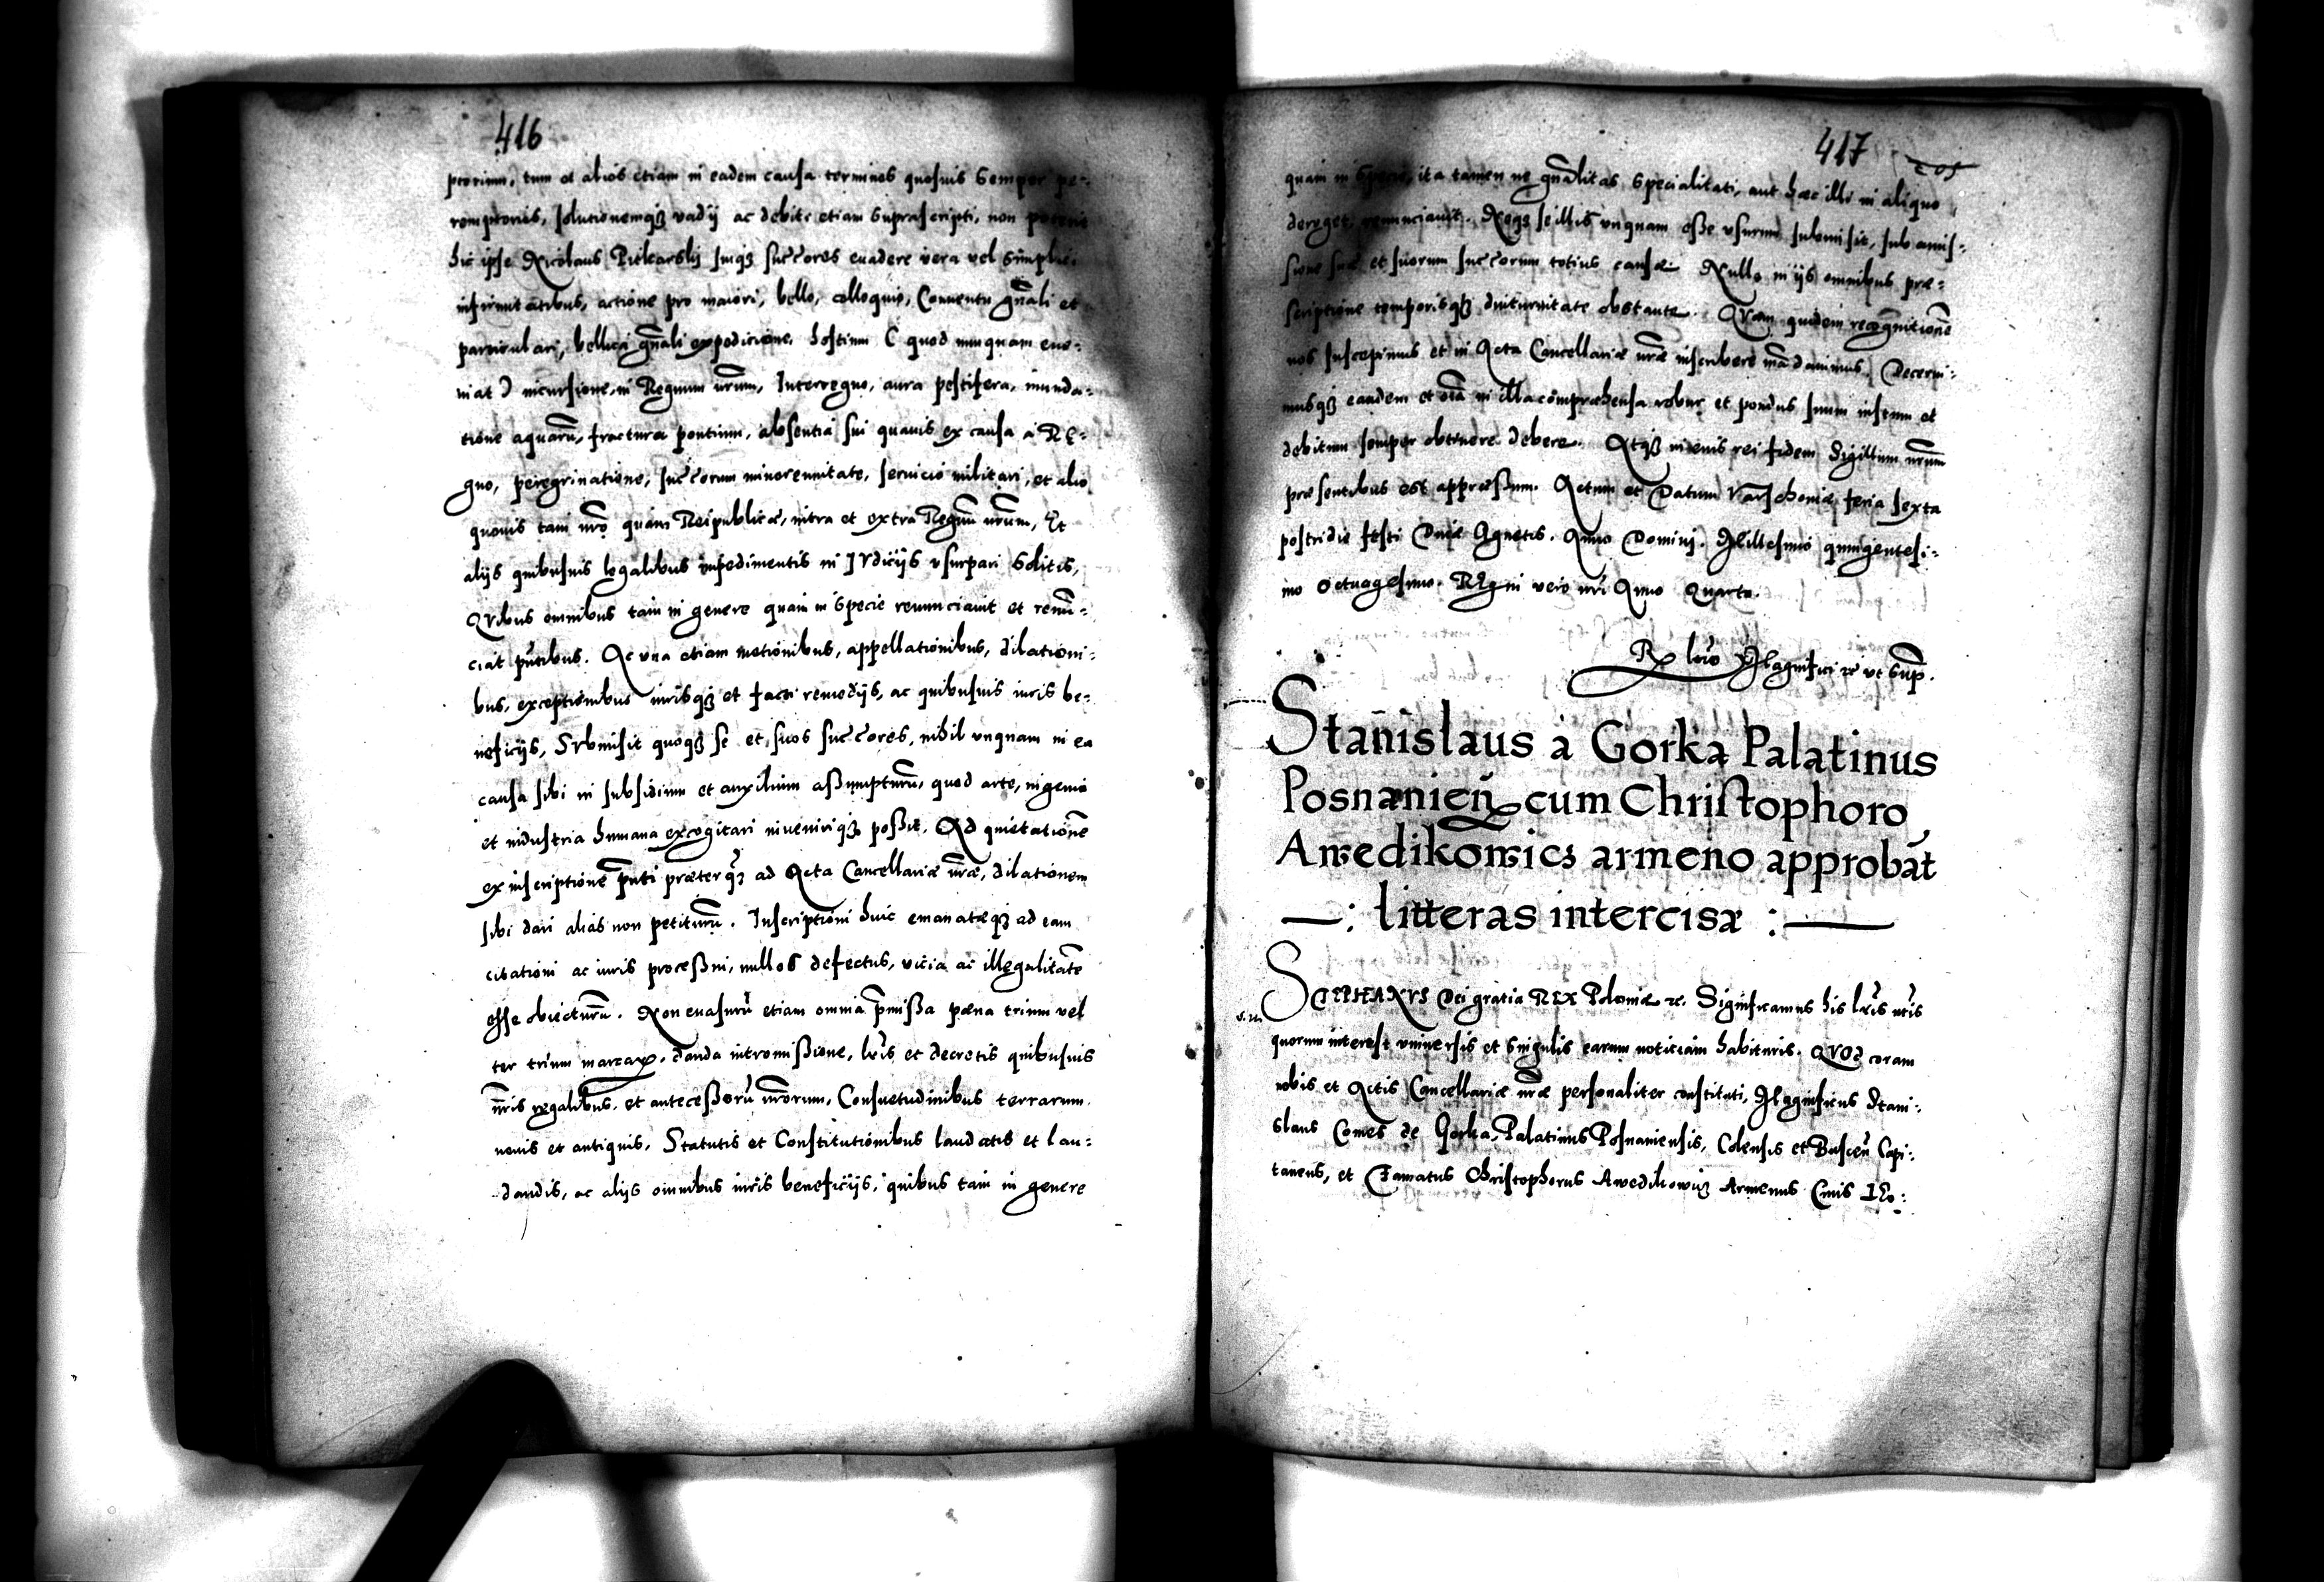 416
ptorium, tum et alios etiam in eadem causa terminos quosuis semper pe-
remptorios, solutionemqꝫ vadij ac debiti etiam suprascripti, non poterit
hic ipse Nicolaus Piekarskij suiqꝫ succores euadere vera vel simplici
infirmitatibus, actione pro maiori, bello, colloquio, Conuentu gn̄ali et
particulari, bellica gn̄ali expedicione, hostium (quod nunquam eue-
niat) incursione, in Regnum nr̄um, Interregno, aura pestifera, inunda-
tione aquarū, fractura pontium, absentia sui quauis ex causa a RE-
gno, peregrinatione, succorum minorennitate, seruicio militari, et alio
quouis tam nr̄o quam Reipublicæ, intra et extra Regnū nr̄um, Et
alijs quibusuis legalibus impedimentis in IVdicijs vsurpari solitis,
QVibus omnibus tam in genere quam in specie renunciauit et renū-
ciat pn̄tibus. Ac vna etiam motionibus, appellationibus, dilationi-
bus, exceptionibus iurisqꝫ et facti remedijs, ac quibusuis iuris be-
neficijs, SVbmisit quoqꝫ se et suos succores, nihil vnquam in ea
causa sibi in subsidium et auxilium aßumpturū, quod arte, ingenio
et industria humana excogitari inueniriqꝫ poßit. Ad quietationē
ex inscriptione pn̄ti præterqꝫ ad Acta Cancellariæ nr̄æ, dilationem
sibi dari alias non petiturū. Inscriptioni huic emanatæqꝫ ad eam
citationi ac iuris proceßui, nullos defectus, vicia ac illegalitatē
esse obiecturū. Non euasurū etiam omnia p̄mißa pæna trium vel
ter trium marcaꝝ, danda intromißione, lrīs et decretis quibusuis
nr̄is regalibus, et anteceßorū nr̄orum, Consuetudinibus terrarum
nouis et antiquis, Statutis et Constitutionibus laudatis et lau-
dandis, ac alijs omnibus iuris beneficijs, quibus tam in genere
417
quam in specie, ita tamen ne gn̄alitas specialitati, aut hæc illi in aliquo
deroget, renunciauit. Neqꝫ se illis vnquam eße vsurum submisit, sub amis-
sione suæ et suorum succorum totius causæ. Nullo in ijs omnibus præ-
scriptione temporisqꝫ diuturnitate obstante. QVam quidem recognitionē
nos suscepimus et in Acta Cancellariæ nr̄æ inscribere mādauimus. Decerni-
musqꝫ eandem et oīa in illa compræhensa robur et pondus suum iustum et
debitum semper obtinere debere. Atqꝫ in euis rei fidem Sigillum nr̄um
præsentibus est appræßum. Actum et Datum Varschouiæ feria sexta
postridie festi Diuæ Agnetis. Anno Dominj. Millesimo quingentesi-
mo Octuagesimo. REgni vero nr̄i Anno Quarto.
Rꝫ lrō Magnifici ꝛc̄ vt sup̄.
Stanislaus a Gorka Palatinus
Posnanień cum Christophoro
Awedikowicz armeno approbāt
—: litteras intercisæ :—
STEPHANVS Dei gratia REX Poloniæ ꝛc. Significamus his lrīs nr̄is
quorum interest vniuersis et singulis earum noticiam habituris. QVOd coram
nobis et Actis Cancellariæ nr̄æ personaliter constituti, Magnificus Stani-
slaus Comes de Gorka, Palatinus Posnaniensis, Colensis et Busceń Capi-
taneus, et Famatus Christophorus Awedikowicz Armenus Ciuis LEo-